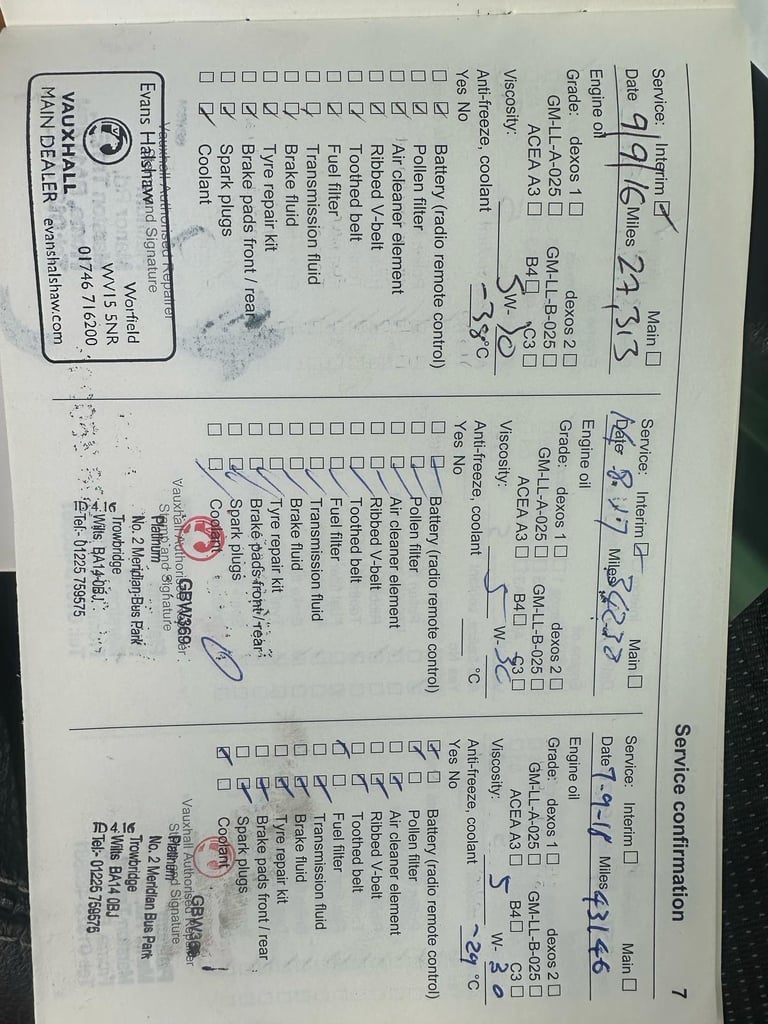 Service confirmation 7
Service: Interim Main
Date 9/9/16 Miles 27,313
Engine oil
Grade: dexos 1 dexos 2
GM-LL-A-025 GM-LL-B-025
ACEA A3 B4 C3
Viscosity: 5 W- 30
Anti-freeze, coolant -38 °C
Yes No
Battery (radio remote control)
Pollen filter
Air cleaner element
Ribbed V-belt
Toothed belt
Fuel filter
Transmission fluid
Brake fluid
Tyre repair kit
Brake pads front / rear
Spark plugs
Coolant
Vauxhall Authorised Repairer
Stamp and Signature
Evans Halshaw
Worfield
WV15 5NR
01746 716200
VAUXHALL
MAIN DEALER evanshalshaw.com
Service: Interim Main
Date Miles
Engine oil
Grade: dexos 1 dexos 2
GM-LL-A-025 GM-LL-B-025
ACEA A3 B4 C3
Viscosity: 5 W- 30
Anti-freeze, coolant °C
Yes No
Battery (radio remote control)
Pollen filter
Air cleaner element
Ribbed V-belt
Toothed belt
Fuel filter
Transmission fluid
Brake fluid
Tyre repair kit
Brake pads front / rear
Spark plugs
Coolant
Vauxhall Authorised Repairer
Stamp and Signature
GBW369
Platinum
No. 2 Meridian Bus Park
Trowbridge
Wilts BA14 0BJ
Tel:- 01225 759575
Service: Interim Main
Date 7-9-18 Miles 43146
Engine oil
Grade: dexos 1 dexos 2
GM-LL-A-025 GM-LL-B-025
ACEA A3 B4 C3
Viscosity: 5 W- 30
Anti-freeze, coolant -29 °C
Yes No
Battery (radio remote control)
Pollen filter
Air cleaner element
Ribbed V-belt
Toothed belt
Fuel filter
Transmission fluid
Brake fluid
Tyre repair kit
Brake pads front / rear
Spark plugs
Coolant
Vauxhall Authorised Repairer
Stamp and Signature
Platinum
No. 2 Meridian Bus Park
Trowbridge
Wilts BA14 0BJ
Tel:- 01225 759575